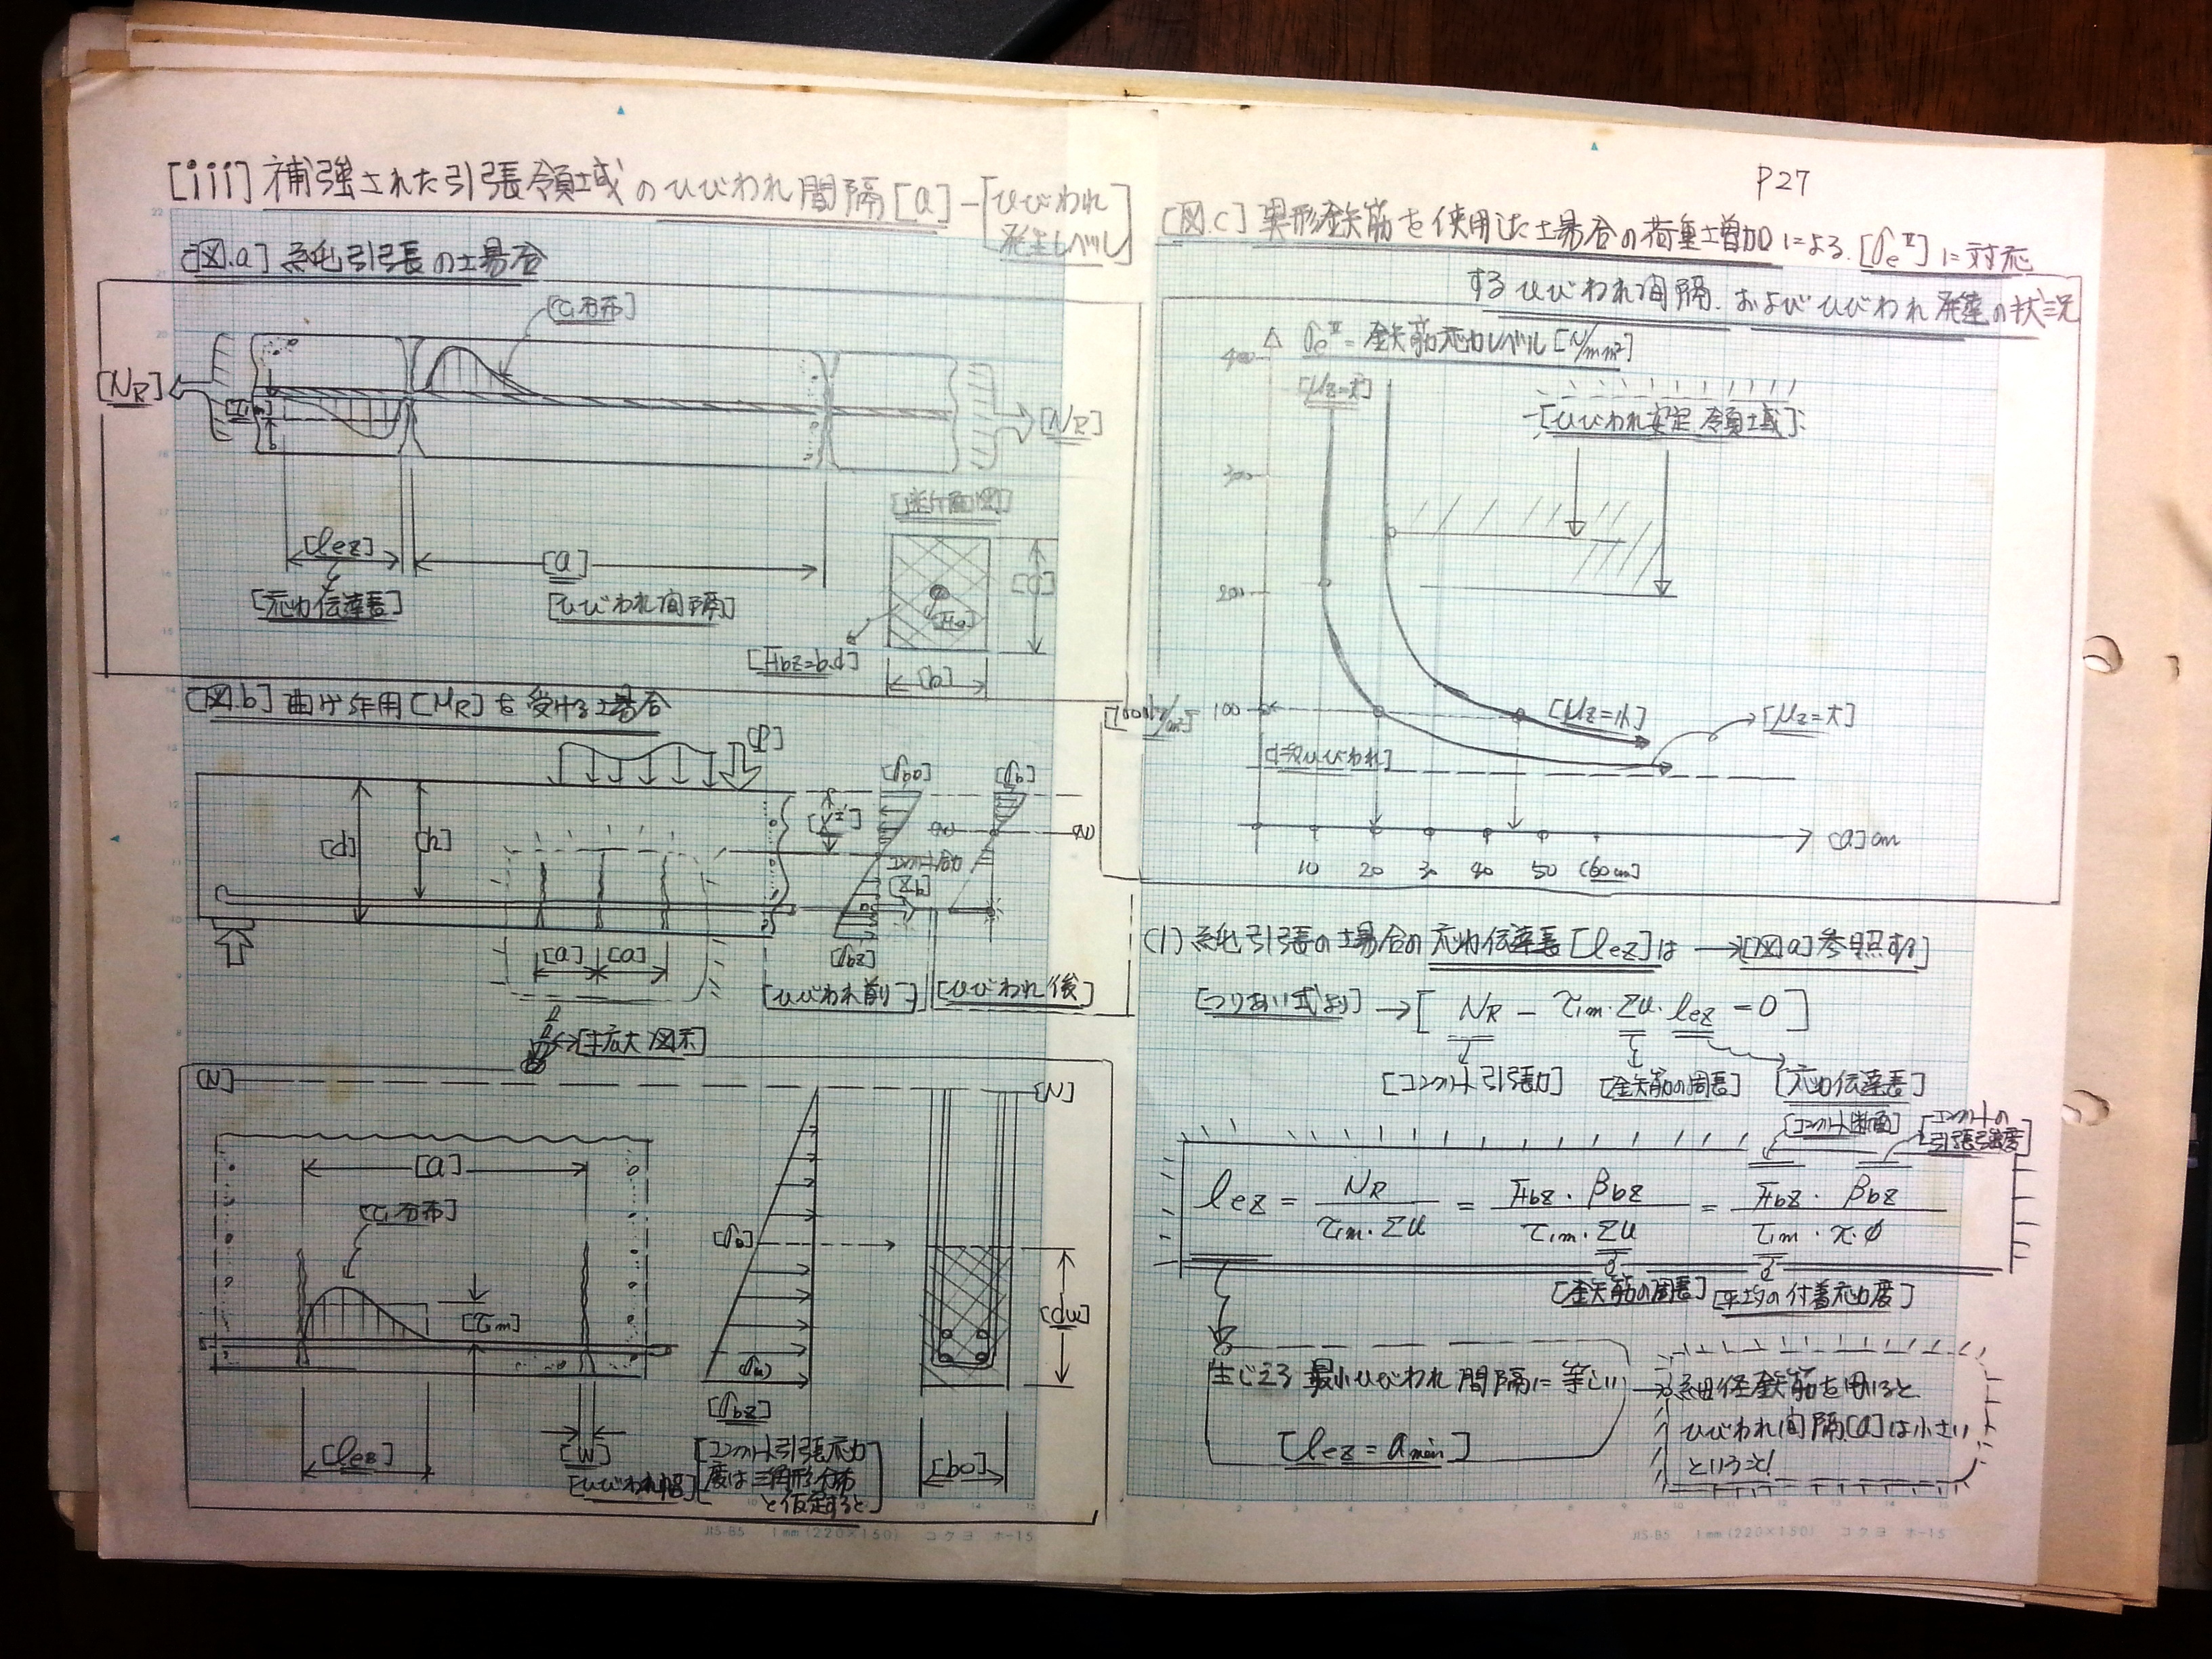 [iii] 補強された引張領域のひびわれ間隔[a]-[ひびわれ
発生レベル]
[図.a] 純引張の場合
[τ₁分布]
[NR]
[τ₁m]
[NR]
[lez]
[a]
[応力伝達長]
[ひびわれ間隔]
[断面図]
[d]
[Fe]
[Fbz=b.d]
[b]
[図.b] 曲げ作用[MR]を受ける場合
[P]
[d]
[h]
[a]
[a]
[σb]
[σb]
(N)
(N)
[Zb]
[σbz]
[ひびわれ前]
[ひびわれ後]
[拡大図示]
[N]
[N]
[a]
[τ₁分布]
[τ₁m]
[σb]
[dw]
[σbz]
[lez]
[W]
[ひびわれ幅]
[コンクリート引張応力
度は三角形分布
と仮定すると]
[bo]
JIS-B5 1mm(220×150) コクヨ ホ-15
P27
[図.c] 異形鉄筋を使用した場合の荷重増加による.[σeᴵᴵ]に対応
するひびわれ間隔.およびひびわれ発達の状況
σeᴵᴵ=鉄筋応力レベル[N/mm²]
400
[μz=大]
[ひびわれ安定領域]
300
200
100
[μz=小]
[μz=大]
[a]cm
10 20 30 40 50 (60cm)
(1) 純引張の場合の応力伝達長[lez]は→[図a]参照する]
[つりあい式より]→[NR-τ₁m・Σu・lez=0]
[コンクリート引張力] [鉄筋の周長] [応力伝達長]
[コンクリート断面] [コンクリートの
引張強度]
lez = NR / τ₁m・Σu = Fbz・βbz / τ₁m・Σu = Fbz・βbz / τ₁m・π・φ
[鉄筋の周長] [平均の付着応力度]
生じえる最小ひびわれ間隔に等しい
[lez=amin]
細径鉄筋を用いると
ひびわれ間隔[a]は小さい
ということ!
JIS-B5 1mm(220×150) コクヨ ホ-15